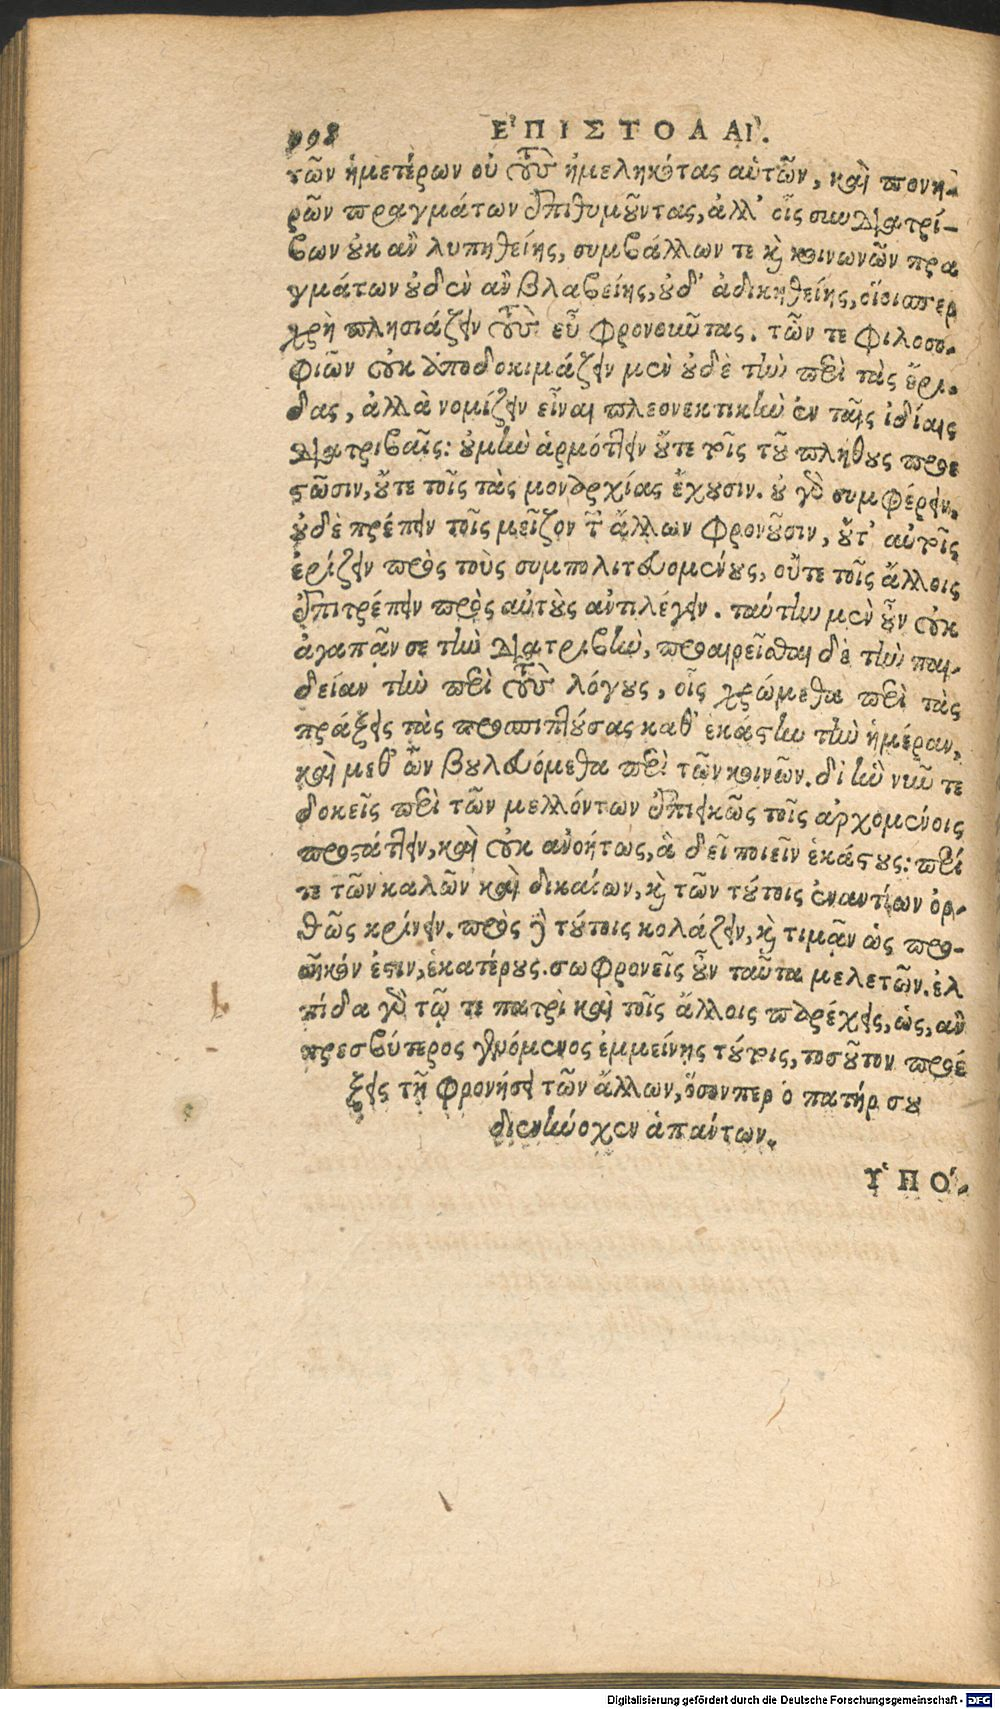 998 ΕΠΙΣΤΟΛΑΙ.
τῶν ἡμετέρων οὐ τοὺς ἠμεληκότας αὑτῶν, καὶ πονη-
ρῶν πραγμάτων ἐπιθυμοῦντας, ἀλλ' οἷς συνδιατρί-
βων οὐκ ἂν λυπηθείης, συμβάλλων τε καὶ κοινωνῶν πρα
γμάτων οὐδὲν ἂν βλαβείης, οὐδ' ἀδικηθείης, οἵοισπερ
χρὴ πλησιάζειν τοὺς εὖ φρονοῦντας. τῶν τε φιλοσο-
φιῶν οὐκ ἀποδοκιμάζειν μὲν οὐδὲ τὴν περὶ τὰς ἔρι-
δας, ἀλλὰ νομίζειν εἶναι πλεονεκτικὴν ἐν ταῖς ἰδίαις
διατριβαῖς: οὐ μὴν ἁρμόττειν οὔτε τοῖς τοῦ πλήθους προε
στῶσιν, οὔτε τοῖς τὰς μοναρχίας ἔχουσιν. οὐ γὰρ συμφέρειν,
οὐδὲ πρέπειν τοῖς μεῖζον τῶν ἄλλων φρονοῦσιν, οὔτ' αὐτοῖς
ἐρίζειν πρὸς τοὺς συμπολιτευομένους, οὔτε τοῖς ἄλλοις
ἐπιτρέπειν πρὸς αὐτοὺς ἀντιλέγειν. ταύτην μὲν οὖν οὐκ
ἀγαπᾷν σε τὴν διατριβὴν, προαιρεῖσθαι δὲ τὴν παι-
δείαν τὴν περὶ τοὺς λόγους, οἷς χρώμεθα περὶ τὰς
πράξεις τὰς προσπιπτούσας καθ' ἑκάστην τὴν ἡμέραν,
καὶ μεθ' ὧν βουλευόμεθα περὶ τῶν κοινῶν. δι' ἣν νῦν τε
δοκεῖς περὶ τῶν μελλόντων ἐπιεικῶς τοῖς ἀρχομένοις
προστάττειν, καὶ οὐκ ἀνοήτως, ἃ δεῖ ποιεῖν ἑκάστους: περί
τε τῶν καλῶν καὶ δικαίων, καὶ τῶν τούτοις ἐναντίων ὀρ-
θῶς κρίνειν. πρὸς δὲ τούτοις κολάζειν, καὶ τιμᾷν ὡς προ-
σῆκόν ἐστιν, ἑκατέρους. σωφρονεῖς οὖν ταῦτα μελετῶν. ἐλ
πίδα γὰρ τῷ τε πατρὶ καὶ τοῖς ἄλλοις παρέχεις, ὡς, ἂν
πρεσβύτερος γενόμενος ἐμμείνῃς τούτοις, τοσοῦτον προέ
ξεις τῇ φρονήσει τῶν ἄλλων, ὅσονπερ ὁ πατήρ σου
διενήνοχεν ἁπάντων.
ΥΠΟ-
Digitalisierung gefördert durch die Deutsche Forschungsgemeinschaft - DFG